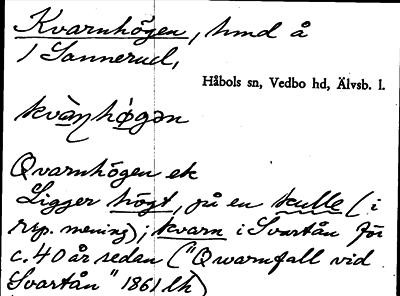 Kvarnhögen, hmd å
/ Sannerud,
Håbols sn, Vedbo hd, Älvsb. l.
kvàɳhǿgən
Qvarnhögen ek
Ligger högt, på en kulle (i
rsp. mening); kvarn i Svartån för
c. 40 år sedan ("Qwarnfall vid
Svartån" 1861 lh)